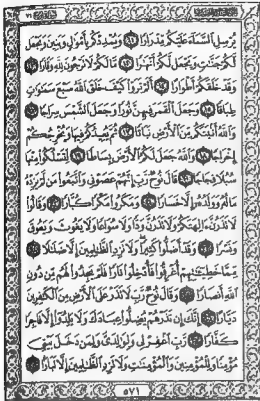 يُرْسِلِ ٱلسَّمَآءَ عَلَيْكُم مِّدْرَارًا ١١ وَيُمْدِدْكُم بِأَمْوَٰلٍ وَبَنِينَ وَيَجْعَل
لَّكُمْ جَنَّٰتٍ وَيَجْعَل لَّكُمْ أَنْهَٰرًا ١٢ مَّا لَكُمْ لَا تَرْجُونَ لِلَّهِ وَقَارًا ١٣
وَقَدْ خَلَقَكُمْ أَطْوَارًا ١٤ أَلَمْ تَرَوْا۟ كَيْفَ خَلَقَ ٱللَّهُ سَبْعَ سَمَٰوَٰتٍ
طِبَاقًا ١٥ وَجَعَلَ ٱلْقَمَرَ فِيهِنَّ نُورًا وَجَعَلَ ٱلشَّمْسَ سِرَاجًا ١٦
وَٱللَّهُ أَنۢبَتَكُم مِّنَ ٱلْأَرْضِ نَبَاتًا ١٧ ثُمَّ يُعِيدُكُمْ فِيهَا وَيُخْرِجُكُمْ
إِخْرَاجًا ١٨ وَٱللَّهُ جَعَلَ لَكُمُ ٱلْأَرْضَ بِسَاطًا ١٩ لِّتَسْلُكُوا۟ مِنْهَا
سُبُلًا فِجَاجًا ٢٠ قَالَ نُوحٌ رَّبِّ إِنَّهُمْ عَصَوْنِى وَٱتَّبَعُوا۟ مَن لَّمْ يَزِدْهُ
مَالُهُۥ وَوَلَدُهُۥٓ إِلَّا خَسَارًا ٢١ وَمَكَرُوا۟ مَكْرًا كُبَّارًا ٢٢ وَقَالُوا۟
لَا تَذَرُنَّ ءَالِهَتَكُمْ وَلَا تَذَرُنَّ وَدًّا وَلَا سُوَاعًا وَلَا يَغُوثَ وَيَعُوقَ
وَنَسْرًا ٢٣ وَقَدْ أَضَلُّوا۟ كَثِيرًا وَلَا تَزِدِ ٱلظَّٰلِمِينَ إِلَّا ضَلَٰلًا ٢٤
مِّمَّا خَطِيٓـَٰٔتِهِمْ أُغْرِقُوا۟ فَأُدْخِلُوا۟ نَارًا فَلَمْ يَجِدُوا۟ لَهُم مِّن دُونِ
ٱللَّهِ أَنصَارًا ٢٥ وَقَالَ نُوحٌ رَّبِّ لَا تَذَرْ عَلَى ٱلْأَرْضِ مِنَ ٱلْكَٰفِرِينَ
دَيَّارًا ٢٦ إِنَّكَ إِن تَذَرْهُمْ يُضِلُّوا۟ عِبَادَكَ وَلَا يَلِدُوٓا۟ إِلَّا فَاجِرًا
كَفَّارًا ٢٧ رَّبِّ ٱغْفِرْ لِى وَلِوَٰلِدَىَّ وَلِمَن دَخَلَ بَيْتِىَ
مُؤْمِنًا وَلِلْمُؤْمِنِينَ وَٱلْمُؤْمِنَٰتِ وَلَا تَزِدِ ٱلظَّٰلِمِينَ إِلَّا تَبَارًۢا ٢٨
٥٧١